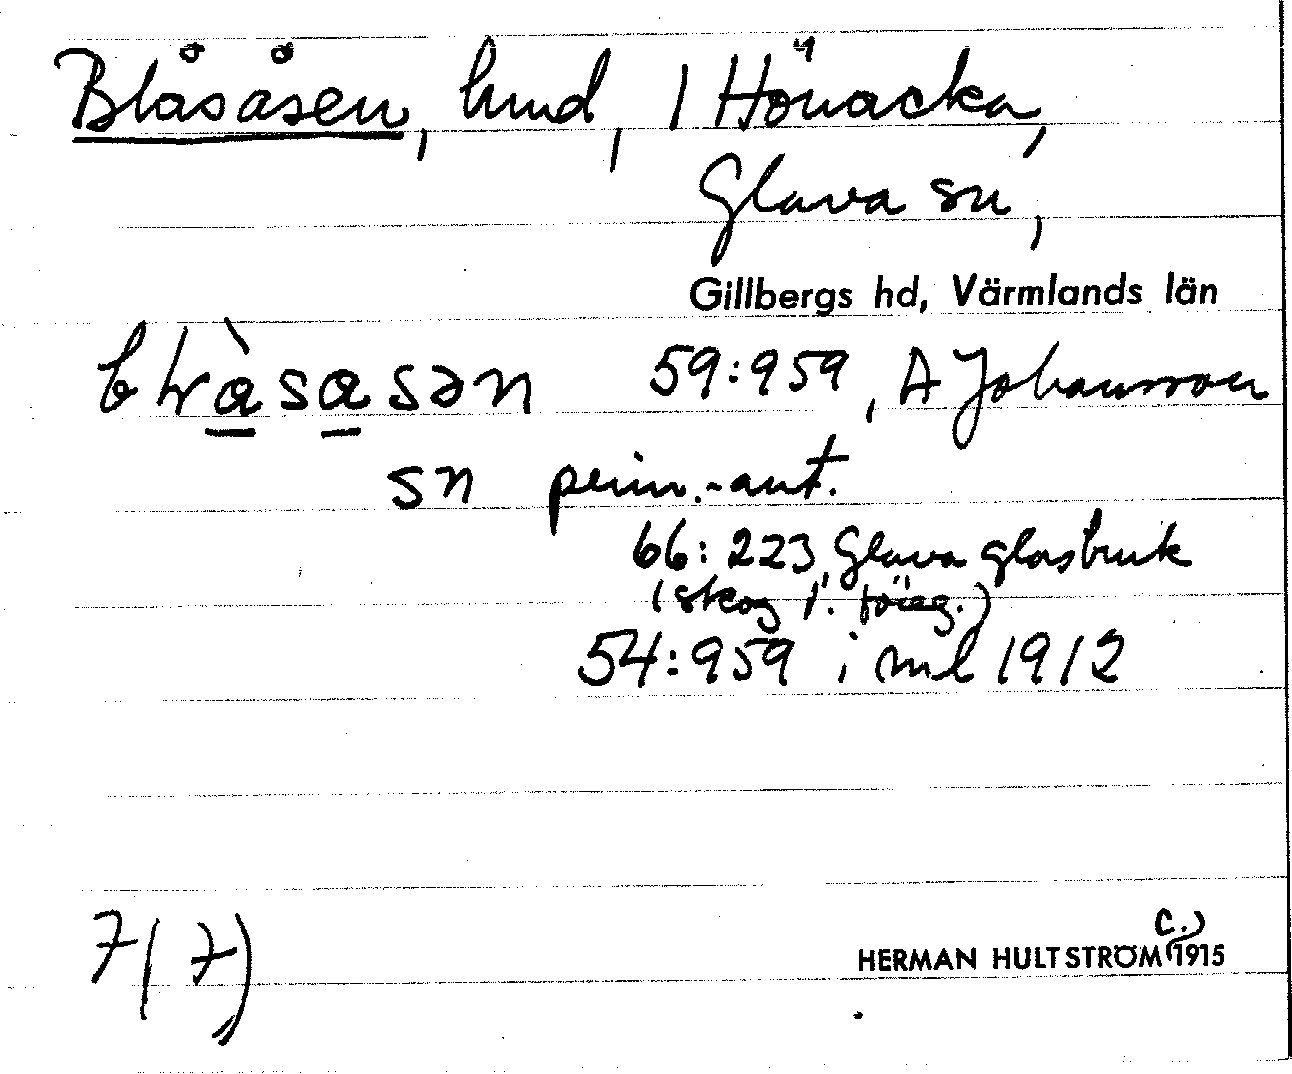 Blåsåsen, hmd, 1 Hönacka,
Glava sn,
Gillbergs hd, Värmlands län
59:959, A Johansson
sn penn.-ant.
66:223, Glava glasbruk
(skog
54:959 i nml 1912
7(7)
HERMAN HULTSTRÖM (c.) 1915